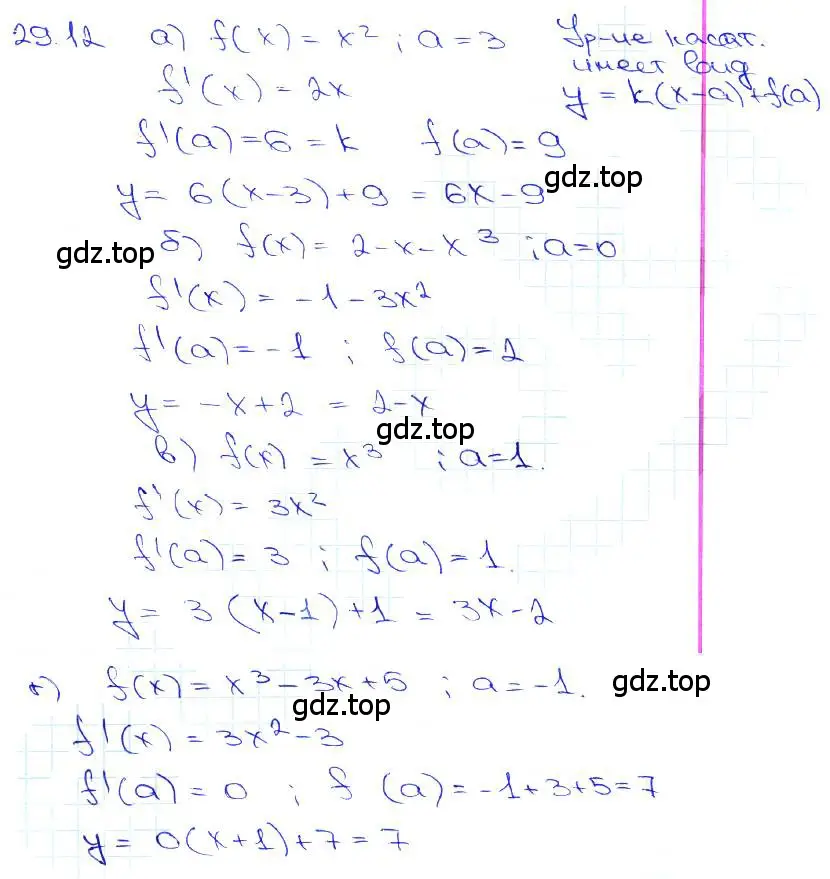 29.12 а) f(x) = x² ; a = 3 Ур-ие касат.
имеет вид
f'(x) = 2x y = k(x-a)+f(a)
f'(a) = 6 = k f(a) = 9
y = 6(x-3)+9 = 6x-9
gdz.top
gdz.top б) f(x) = 2-x-x³ ; a=0
f'(x) = -1-3x²
f'(a) = -1 ; f(a) = 2
y = -x+2 = 2-x
gdz.top
в) f(x) = x³ ; a=1.
f'(x) = 3x²
f'(a) = 3 ; f(a) = 1.
y = 3(x-1)+1 = 3x-2
г) f(x) = x³-3x+5 ; a = -1. gdz.top
gdz.top
f'(x) = 3x²-3
f'(a) = 0 ; f(a) = -1+3+5=7
y = 0(x+1)+7=7